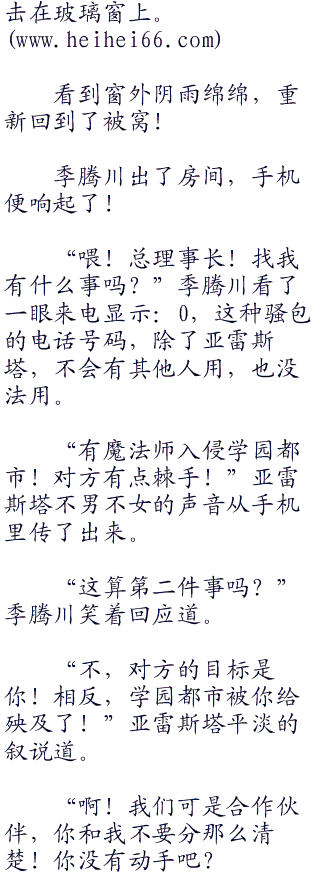 击在玻璃窗上。
(www.heihei66.com)
看到窗外阴雨绵绵，重
新回到了被窝！
季腾川出了房间，手机
便响起了！
“喂！总理事长！找我
有什么事吗？”季腾川看了
一眼来电显示：0，这种骚包
的电话号码，除了亚雷斯
塔，不会有其他人用，也没
法用。
“有魔法师入侵学园都
市！对方有点棘手！”亚雷
斯塔不男不女的声音从手机
里传了出来。
“这算第二件事吗？”
季腾川笑着回应道。
“不，对方的目标是
你！相反，学园都市被你给
殃及了！”亚雷斯塔平淡的
叙说道。
“啊！我们可是合作伙
伴，你和我不要分那么清
楚！你没有动手吧？